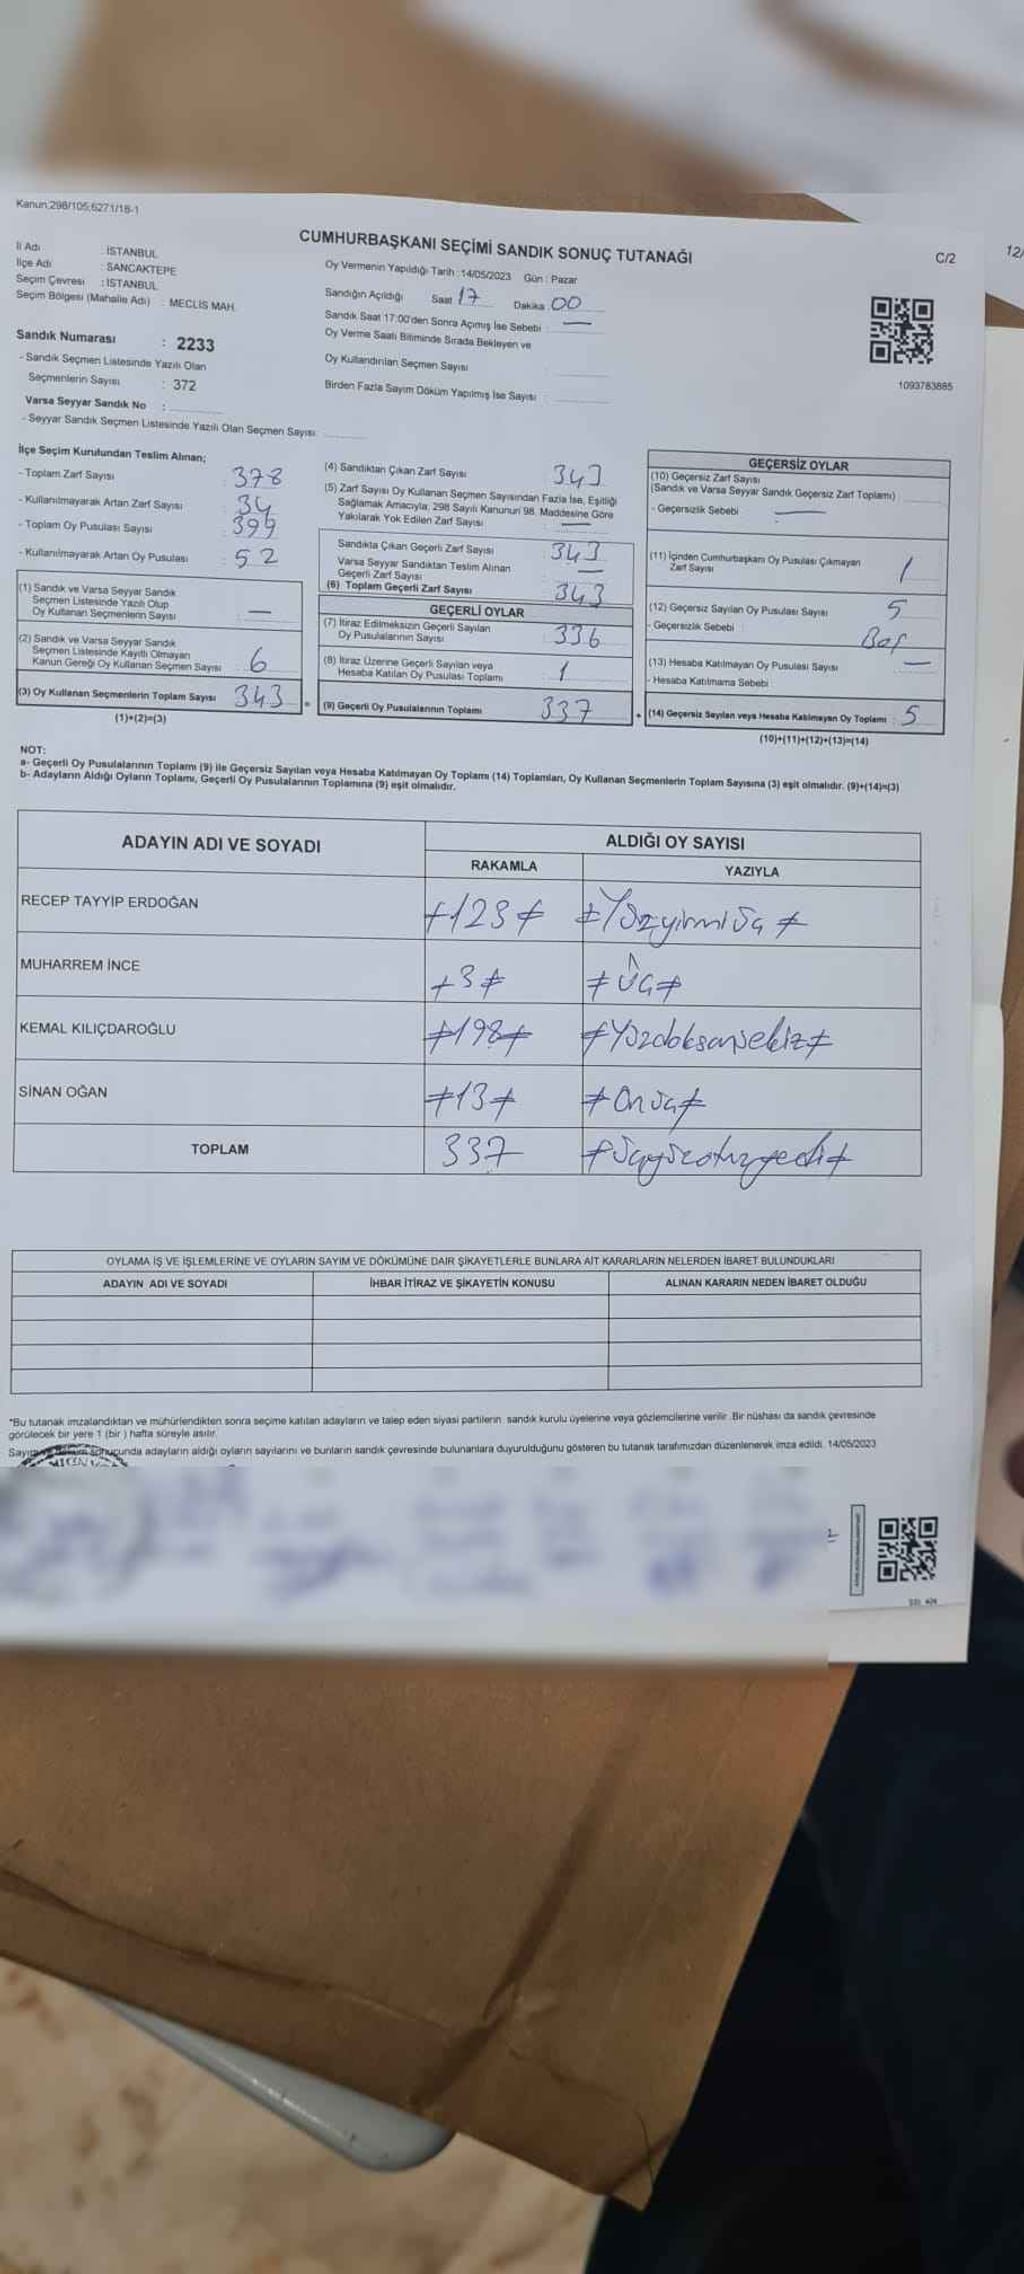 Kanun:298/105;6271/18-1
CUMHURBAŞKANI SEÇİMİ SANDIK SONUÇ TUTANAĞI
C/2
12/
İl Adı : İSTANBUL
İlçe Adı : SANCAKTEPE
Seçim Çevresi : İSTANBUL
Seçim Bölgesi (Mahalle Adı) : MECLİS MAH.
Oy Vermenin Yapıldığı Tarih : 14/05/2023 Gün : Pazar
Sandığın Açıldığı Saat 17 Dakika 00
Sandık Saat 17:00'den Sonra Açımış İse Sebebi : —
Oy Verme Saati Bitiminde Sırada Bekleyen ve
Oy Kullandırılan Seçmen Sayısı :
Birden Fazla Sayım Döküm Yapılmış İse Sayısı :
1093783885
Sandık Numarası : 2233
- Sandık Seçmen Listesinde Yazılı Olan
Seçmenlerin Sayısı : 372
Varsa Seyyar Sandık No :
- Seyyar Sandık Seçmen Listesinde Yazılı Olan Seçmen Sayısı:
İlçe Seçim Kurulundan Teslim Alınan;
- Toplam Zarf Sayısı : 378
- Kullanılmayarak Artan Zarf Sayısı : 34
- Toplam Oy Pusulası Sayısı : 399
- Kullanılmayarak Artan Oy Pusulası : 52
(1) Sandık ve Varsa Seyyar Sandık
Seçmen Listesinde Yazılı Olup
Oy Kullanan Seçmenlerin Sayısı : —
(2) Sandık ve Varsa Seyyar Sandık
Seçmen Listesinde Kayıtlı Olmayan
Kanun Gereği Oy Kullanan Seçmen Sayısı : 6
(3) Oy Kullanan Seçmenlerin Toplam Sayısı : 343
(1)+(2)=(3)
(4) Sandıktan Çıkan Zarf Sayısı : 343
(5) Zarf Sayısı Oy Kullanan Seçmen Sayısından Fazla İse, Eşitliği
Sağlamak Amacıyla; 298 Sayılı Kanunun 98. Maddesine Göre
Yakılarak Yok Edilen Zarf Sayısı : —
Sandıkta Çıkan Geçerli Zarf Sayısı : 343
Varsa Seyyar Sandıktan Teslim Alınan
Geçerli Zarf Sayısı : —
(6) Toplam Geçerli Zarf Sayısı : 343
GEÇERLİ OYLAR
(7) İtiraz Edilmeksizin Geçerli Sayılan
Oy Pusulalarının Sayısı : 336
(8) İtiraz Üzerine Geçerli Sayılan veya
Hesaba Katılan Oy Pusulası Toplamı : 1
(9) Geçerli Oy Pusulalarının Toplamı : 337
GEÇERSİZ OYLAR
(10) Geçersiz Zarf Sayısı
(Sandık ve Varsa Seyyar Sandık Geçersiz Zarf Toplamı) :
- Geçersizlik Sebebi : —
(11) İçinden Cumhurbaşkanı Oy Pusulası Çıkmayan
Zarf Sayısı : 1
(12) Geçersiz Sayılan Oy Pusulası Sayısı : 5
- Geçersizlik Sebebi : Boş
(13) Hesaba Katılmayan Oy Pusulası Sayısı : —
- Hesaba Katılmama Sebebi :
(14) Geçersiz Sayılan veya Hesaba Katılmayan Oy Toplamı : 5
(10)+(11)+(12)+(13)=(14)
NOT:
a- Geçerli Oy Pusulalarının Toplamı (9) ile Geçersiz Sayılan veya Hesaba Katılmayan Oy Toplamı (14) Toplamları, Oy Kullanan Seçmenlerin Toplam Sayısına (3) eşit olmalıdır. (9)+(14)=(3)
b- Adayların Aldığı Oyların Toplamı, Geçerli Oy Pusulalarının Toplamına (9) eşit olmalıdır.
ADAYIN ADI VE SOYADI
ALDIĞI OY SAYISI
RAKAMLA YAZIYLA
RECEP TAYYİP ERDOĞAN ≠123≠ ≠Yüzyirmiüç≠
MUHARREM İNCE ≠3≠ ≠Üç≠
KEMAL KILIÇDAROĞLU ≠198≠ ≠Yüzdoksansekiz≠
SİNAN OĞAN ≠13≠ ≠Onüç≠
TOPLAM 337 ≠üçyüzotuzyedi≠
OYLAMA İŞ VE İŞLEMLERİNE VE OYLARIN SAYIM VE DÖKÜMÜNE DAİR ŞİKAYETLERLE BUNLARA AİT KARARLARIN NELERDEN İBARET BULUNDUKLARI
ADAYIN ADI VE SOYADI İHBAR İTİRAZ VE ŞİKAYETİN KONUSU ALINAN KARARIN NEDEN İBARET OLDUĞU
*Bu tutanak imzalandıktan ve mühürlendikten sonra seçime katılan adayların ve talep eden siyasi partilerin sandık kurulu üyelerine veya gözlemcilerine verilir. Bir nüshası da sandık çevresinde
görülecek bir yere 1 (bir ) hafta süreyle asılır.
Sayım ve döküm sonucunda adayların aldığı oyların sayılarını ve bunların sandık çevresinde bulunanlara duyurulduğunu gösteren bu tutanak tarafımızdan düzenlenerek imza edildi. 14/05/2023